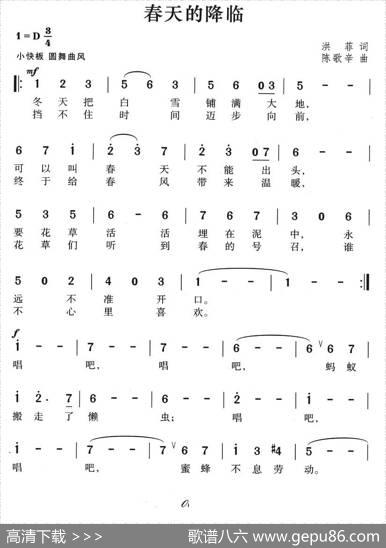 春天的降临
1=D 3/4
小快板 圆舞曲风
洪菲 词
陈歌辛 曲
mf
1 2 3 | 5 6 3 | 5 6 0 3 | 5 - - |
冬天把白雪铺满大地，
挡不住时间迈步向前，
6 7 i | 2 3 - | 7 2. 3 | 0 7 6 - - |
可以叫春天不能出头，
终于给春风带来温暖，
5 3 5 | 6 - 6 | 7 6 5 | 3 0 6 |
要花草活活埋在泥中，永
花草们听到春的号召，谁
5 0 2 | 4 0 3 | 1 - - | 1 - - :|
远不准开口。
不心里喜欢。
f
i - - | 7 - - | i - - | 7 - - | 6 - - | 6 6 6 |
唱吧，唱吧，蚂蚁
i 2. 7 | 6 - i | 2 - - | 6 - - | i - - | 6 - - |
搬走了懒虫；唱吧，
i - - | 7 - - | 7 6 7 | i 3 #4 | 5 - - | 5 - - |
唱吧，蜜蜂不息劳动。
高清下载 > >>
歌谱八六 www.gepu86.com